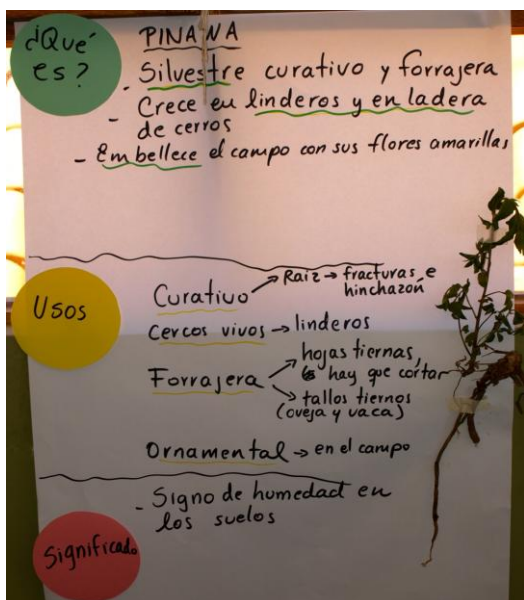 ¿Qué
es?
PINAWA
- Silvestre curativo y forrajera
- Crece en linderos y en ladera
de cerros
- Embellece el campo con sus flores amarillas
Usos
Curativo → Raiz → fracturas e
hinchazón
Cercos vivos → linderos
Forrajera → hojas tiernas,
hay que cortar
→ tallos tiernos
(oveja y vaca)
Ornamental → en el campo
- Signo de humedad en
los suelos
Significado